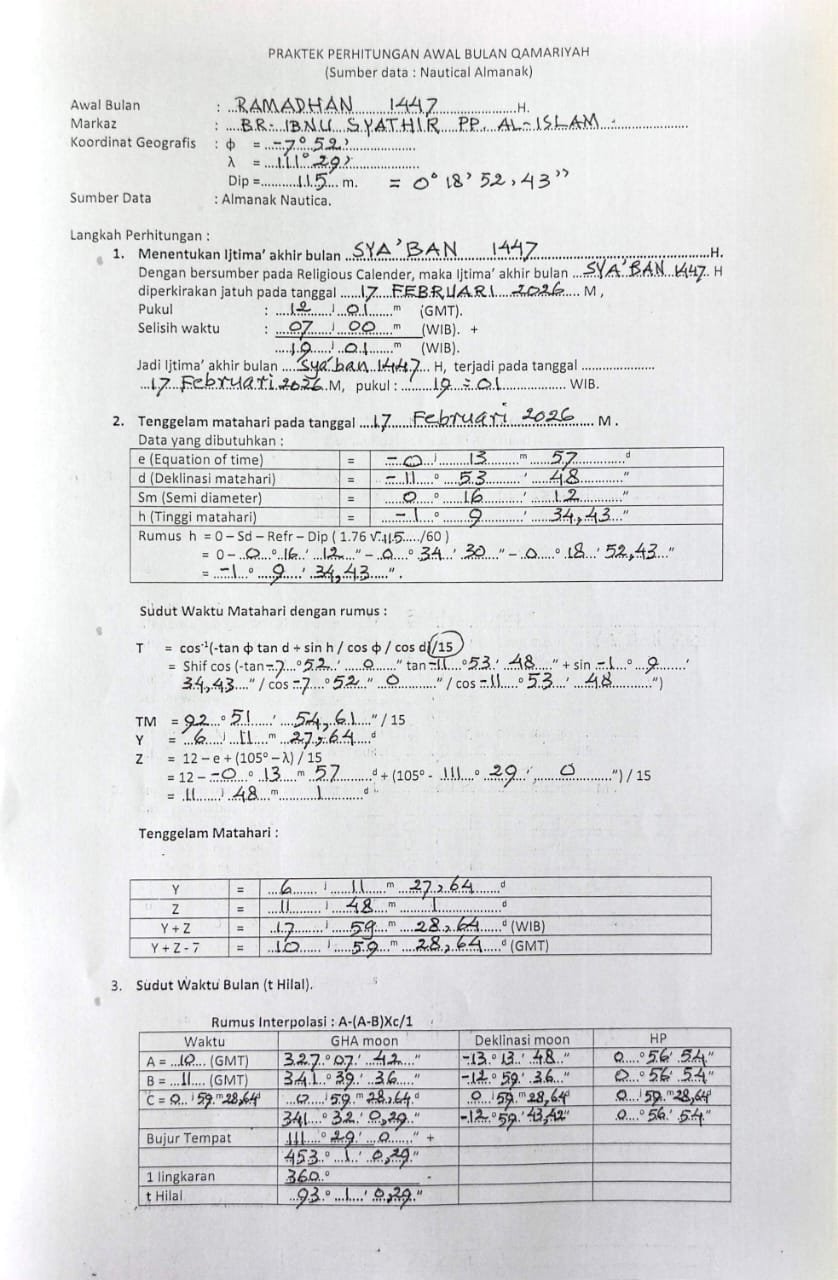 PRAKTEK PERHITUNGAN AWAL BULAN QAMARIYAH
(Sumber data : Nautical Almanak)
Awal Bulan : RAMADHAN 1447 H.
Markaz : BR. IBNU SYATHIR PP. AL-ISLAM
Koordinat Geografis : ϕ = -7° 52'
λ = 111° 29'
Dip = 115 m. = 0° 18' 52,43"
Sumber Data : Almanak Nautica.
Langkah Perhitungan :
1. Menentukan Ijtima' akhir bulan SYA'BAN 1447 H.
Dengan bersumber pada Religious Calender, maka Ijtima' akhir bulan SYA'BAN 1447 H
diperkirakan jatuh pada tanggal 17 FEBRUARI 2026 M ,
Pukul : 12 j 01 m (GMT).
Selisih waktu : 07 j 00 m (WIB). +
19 j 01 m (WIB).
Jadi Ijtima' akhir bulan Sya'ban 1447 H, terjadi pada tanggal
17 Februari 2026 M, pukul : 19 : 01 WIB.
2. Tenggelam matahari pada tanggal 17 Februari 2026 M .
Data yang dibutuhkan :
e (Equation of time) = -0 j 13 m 57 d
d (Deklinasi matahari) = -11 ° 53 ' 48 "
Sm (Semi diameter) = 0 ° 16 ' 12 "
h (Tinggi matahari) = -1 ° 9 ' 34,43 "
Rumus h = 0 – Sd – Refr – Dip ( 1.76 √ 115 /60 )
= 0 – 0 ° 16 ' 12 " – 0 ° 34 ' 30 " – 0 ° 18 ' 52,43 "
= -1 ° 9 ' 34,43 " .
Sudut Waktu Matahari dengan rumus :
T = cos⁻¹(-tan ϕ tan d + sin h / cos ϕ / cos d)/15
= Shif cos (-tan -7 ° 52 ' 0 " tan -11 ° 53 ' 48 " + sin -1 ° 9 '
34,43 " / cos -7 ° 52 " 0 " / cos -11 ° 53 ' 48 ")
TM = 92 ° 51 ' 54,61 " / 15
Y = 6 j 11 m 27,64 d
Z = 12 – e + (105° – λ) / 15
= 12 – -0 ° 13 m 57 d + (105° - 111 ° 29 ' 0 ") / 15
= 11 j 48 m 1 d
Tenggelam Matahari :
Y = 6 j 11 m 27,64 d
Z = 11 j 48 m 1 d
Y + Z = 17 j 59 m 28,64 d (WIB)
Y + Z - 7 = 10 j 59 m 28,64 d (GMT)
3. Sudut Waktu Bulan (t Hilal).
Rumus Interpolasi : A-(A-B)Xc/1
Waktu GHA moon Deklinasi moon HP
A = 10 (GMT) 327 ° 07 ' 42 " -13 ° 13 ' 48 " 0 ° 56 ' 54 "
B = 11 (GMT) 341 ° 39 ' 36 " -12 ° 59 ' 36 " 0 ° 56 ' 54 "
C = 0 j 59 m 28,64 d 0 j 59 m 28,64 d 0 j 59 m 28,64 d 0 j 59 m 28,64 d
341 ° 32 ' 0,29 " -12 ° 59 ' 43,42 " 0 ° 56 ' 54 "
Bujur Tempat 111 ° 29 ' 0 " +
453 ° 1 ' 0,29 "
1 lingkaran 360 ° -
t Hilal 93 ° 1 ' 0,29 "